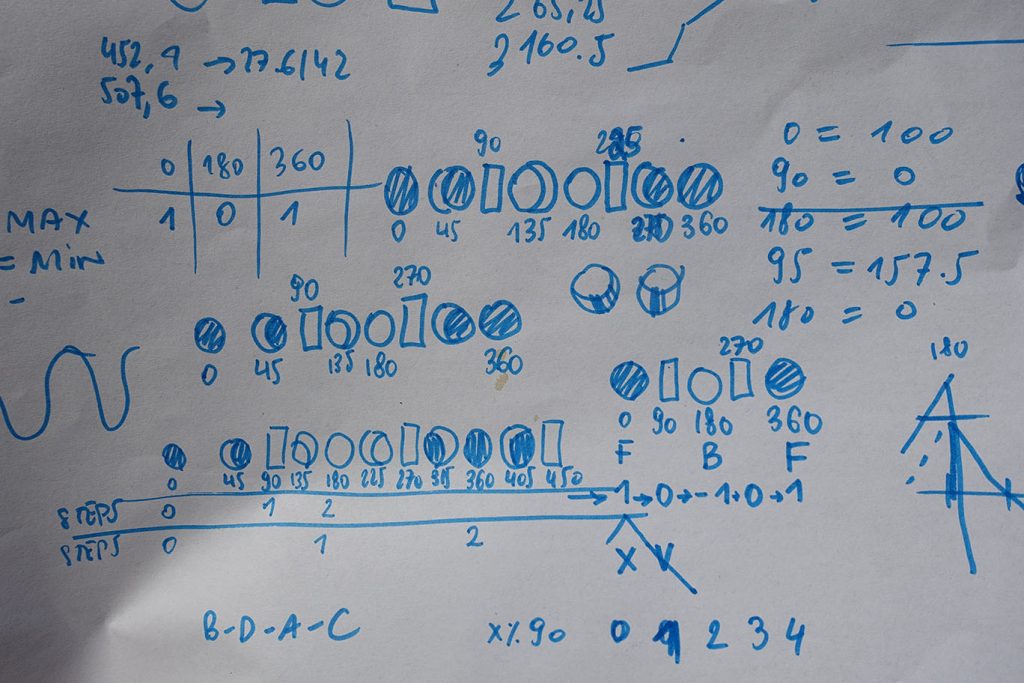 265,25
3160.5
452,1 → 77.6/42
507,6 →
0 180 360
1 0 1
MAX
= MiN
-
90
0 45 135 180 360
0 = 100
90 = 0
180 = 100
95 = 157.5
180 = 0
90 270
0 45 135 180 360
270
0 90 180 360
F B F
→ 1→0→-1→0→1
X V
180
0 45 90 135 180 225 270 315 360 405 450
STEPS 0 1 2
STEPS 0 1 2
B-D-A-C
X % 90 0 1 2 3 4